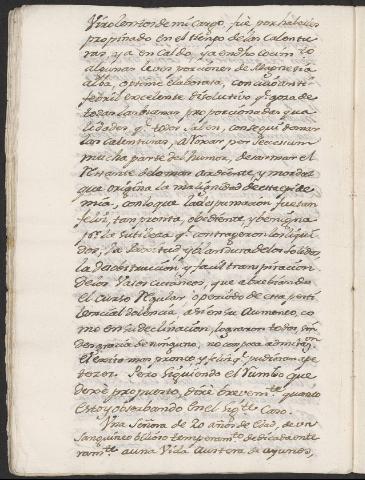 Virolentos de mi Cargo, fue por haberles
propinado en el tiempo de las Calentu-
ras, ya en Caldo, ya en dho cocim.to
algunas leves porciones de Magnesia
alba, optime elaborata, con cuio anti-
febril excelente disolutivo q.e goza de
todas las buenas proporcionadas qua-
lidades q.e todos saben, consegui domar
las calenturas, arrojar por Secessum
mucha parte del humor, desarmar el
restante de lo mas ardiente, y mordaz
que origina la malignidad de esta epide-
mia, con lo que la despumacion fue tan
feliz, tan pronta, obediente, y benigna
p.r la sutileza q.e contrageron los liqui-
dos, la laxitud y blandura de los solidos
la desobstruccion y facil transpiracion
de los Vasos Cutaneos, que abrebiando
el Curso Regular o periodo de esta pesti-
lencial dolencia, asi en su Aumento, co-
mo en su declinacion, lograron todos, sin
desgracia de ninguno, no con poca admiraz.on
el exito mas pronto y feliz q.e pudieran ape-
tezer. Pero siguiendo el rumbo que
dexè propuesto, dirè brevem.te quanto
estoy observando en el sig.te Caso.
Una Señora de 20 años de Edad, de un
Sanguineo bilioso temperam.to dedicada ente-
ram.te a una Vida Austera, de ayunos,